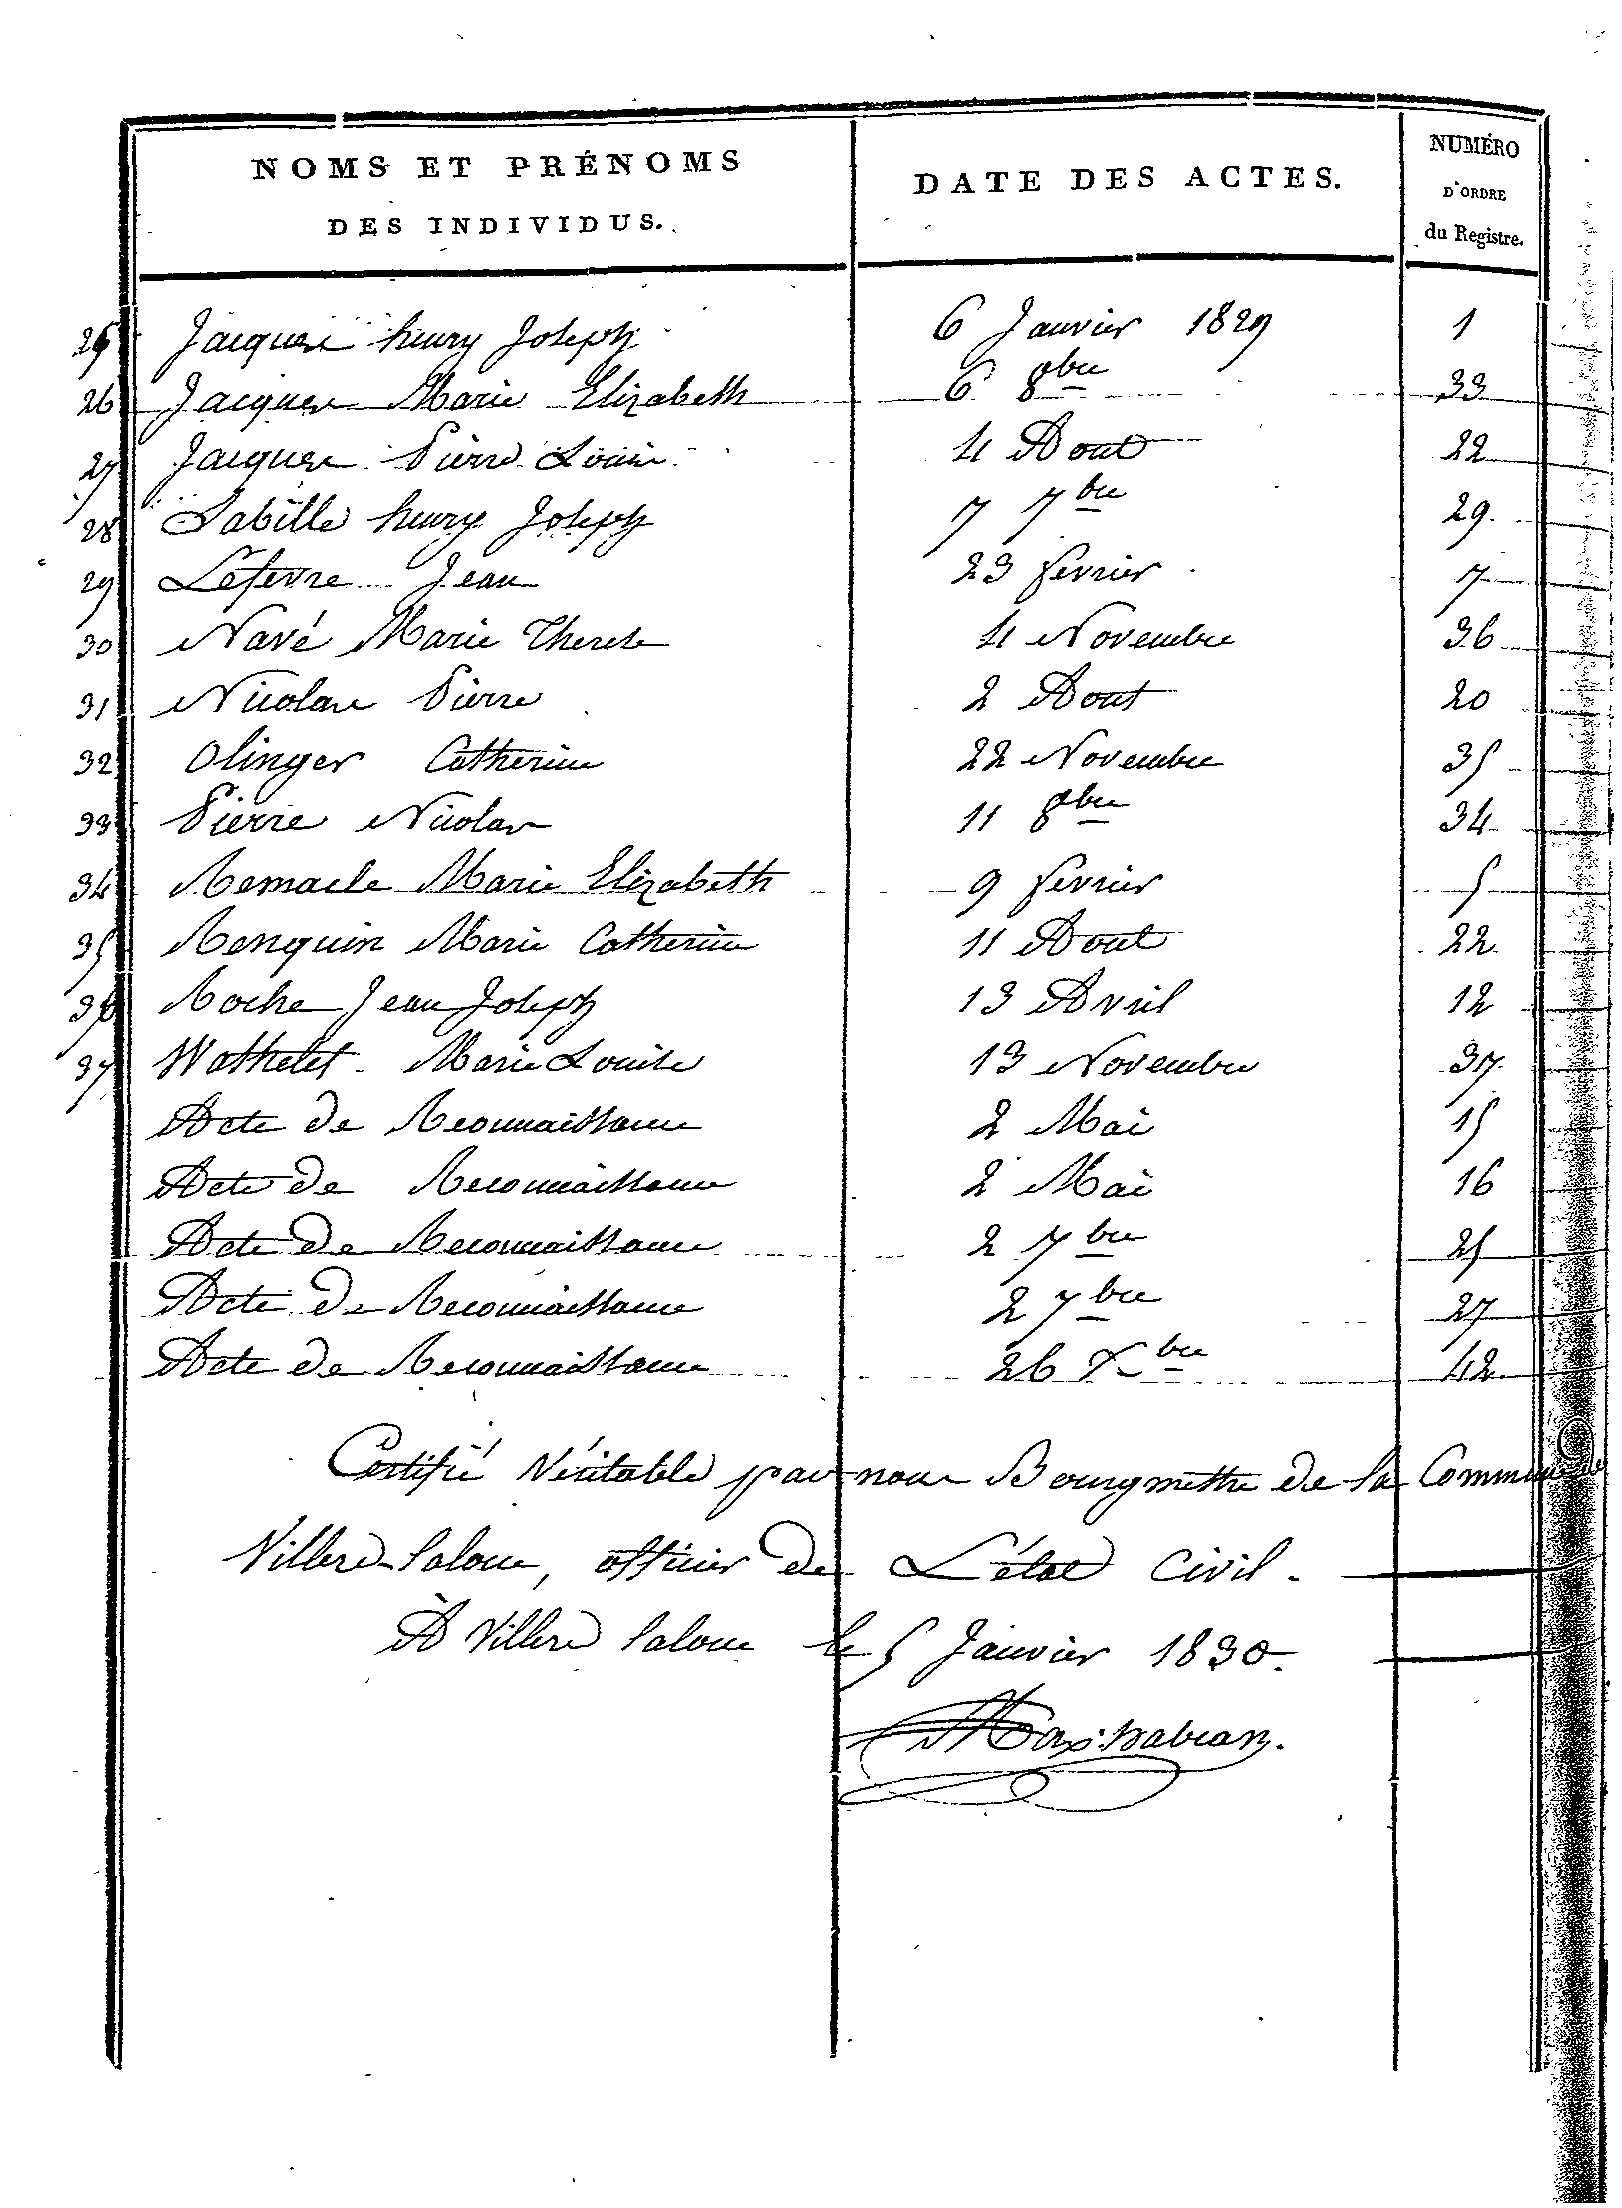 NOMS ET PRÉNOMS DES INDIVIDUS. DATE DES ACTES. NUMÉRO D'ORDRE du Registre.
25 Jacques henry Joseph 6 Janvier 1829 1
26 Jacques Marie Elizabeth 6 8bre 33
27 Jacques Pierre Louis 4 Aout 22
28 Labille henry Joseph 7 7bre 29
29 Lefevre Jean 23 fevrier 7
30 Navé Marie Therese 4 Novembre 36
31 Nicolas Pierre 2 Aout 20
32 Olinger Catherine 22 Novembre 35
33 Pierre Nicolas 11 8bre 34
34 Remacle Marie Elizabeth 9 fevrier 5
35 Renquin Marie Catherine 11 Aout 22
36 Roche Jean Joseph 13 Avril 12
37 Wathelet Marie Louise 13 Novembre 37
Acte de Reconnaissance 2 Mai 15
Acte de Reconnaissance 2 Mai 16
Acte de Reconnaissance 2 7bre 25
Acte de Reconnaissance 2 7bre 27
Acte de Reconnaissance 26 Xbre 42
Certifié Véritable par nous Bourgmettre de la Commune de
Villers-laloue, officier de L'état Civil.
A Villers laloue le 5 Janvier 1830.